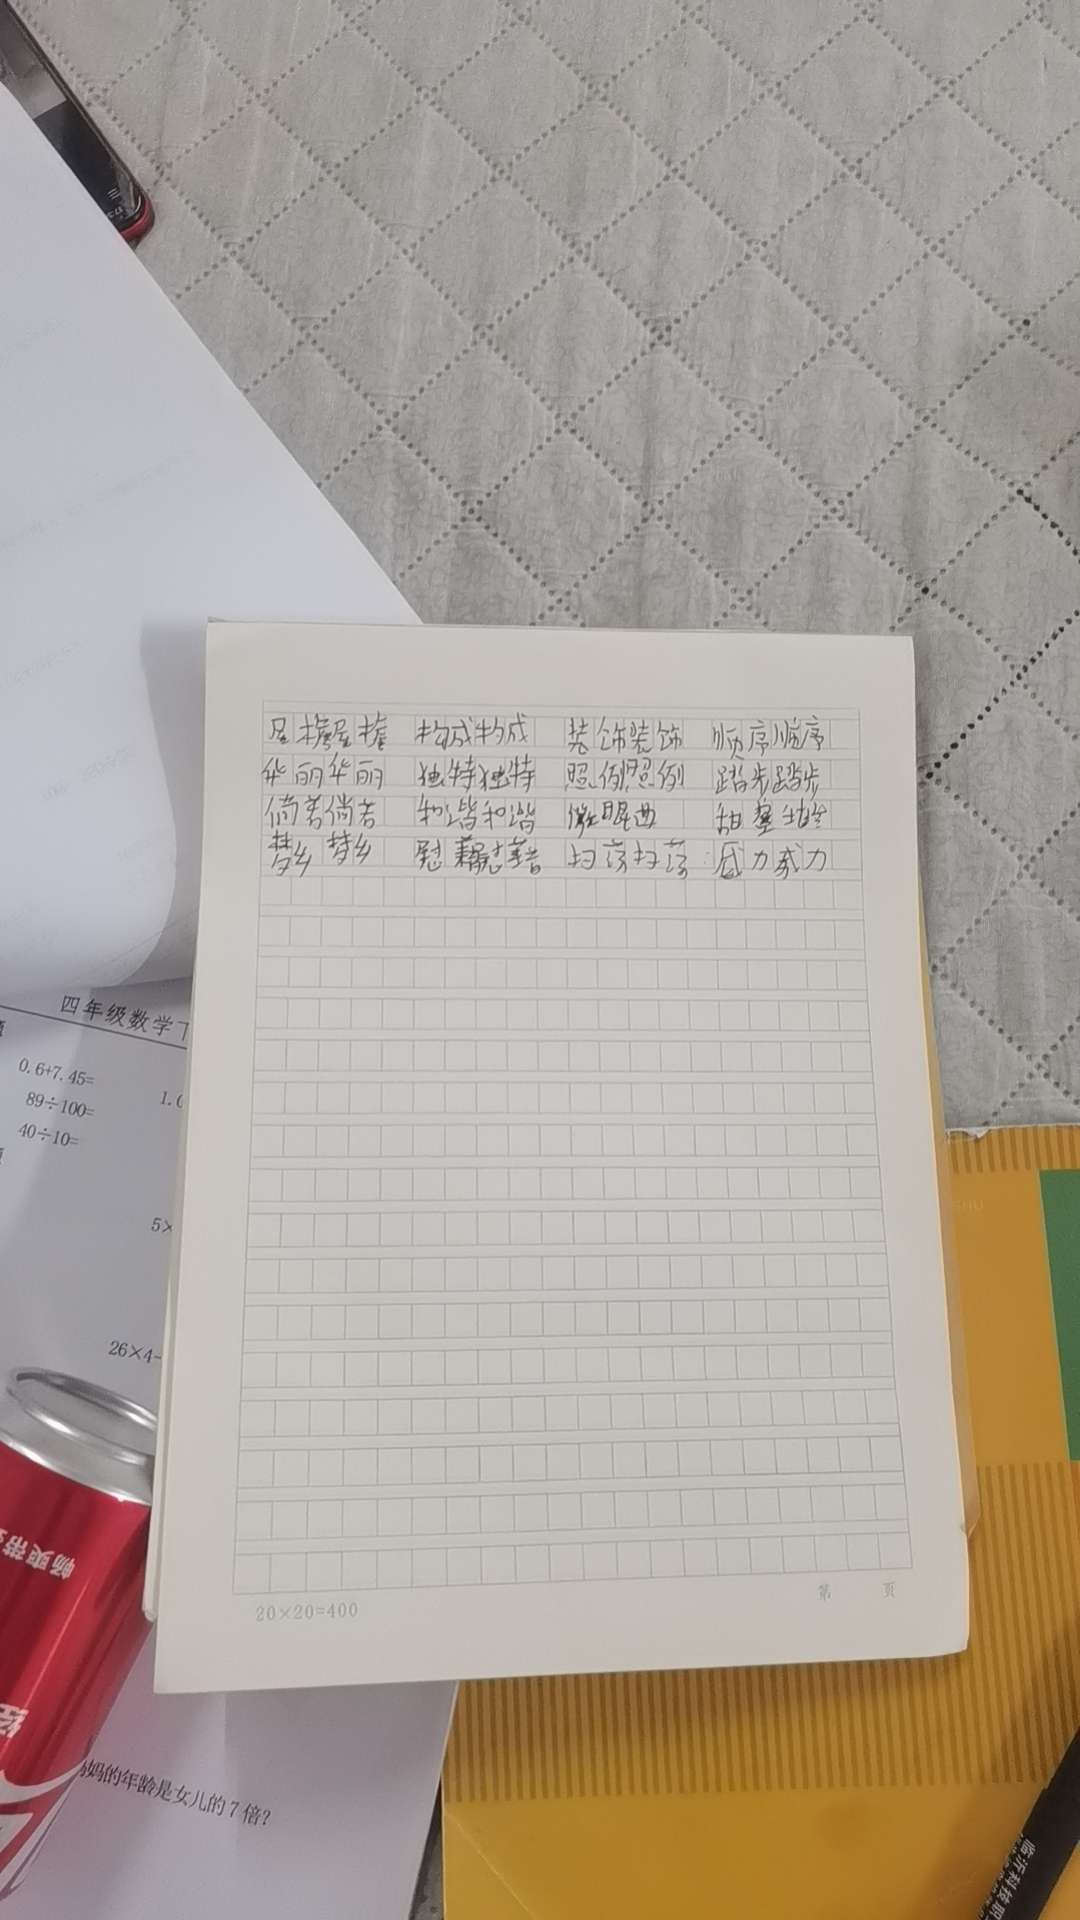 屋檐屋檐 构成构成 装饰装饰 顺序顺序
华丽华丽 独特独特 照例照例 踏步踏步
倘若倘若 和谐和谐 眠曲
梦乡 梦乡 慰藉慰藉 扫荡扫荡 威力威力
20×20=400
第 页
四年级数学下
0.6+7.45=
89÷100=
40÷10=
5×
26×4-
妈的年龄是女儿的7倍?
畅爽带
临沂科技职